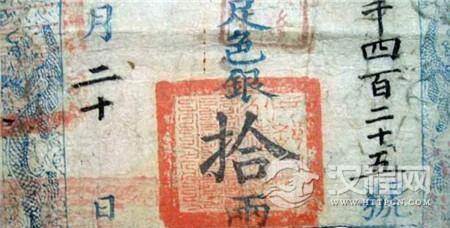 四百二十五號
足色銀拾兩
月二十日
汉程网
WWW.HTTPCN.COM